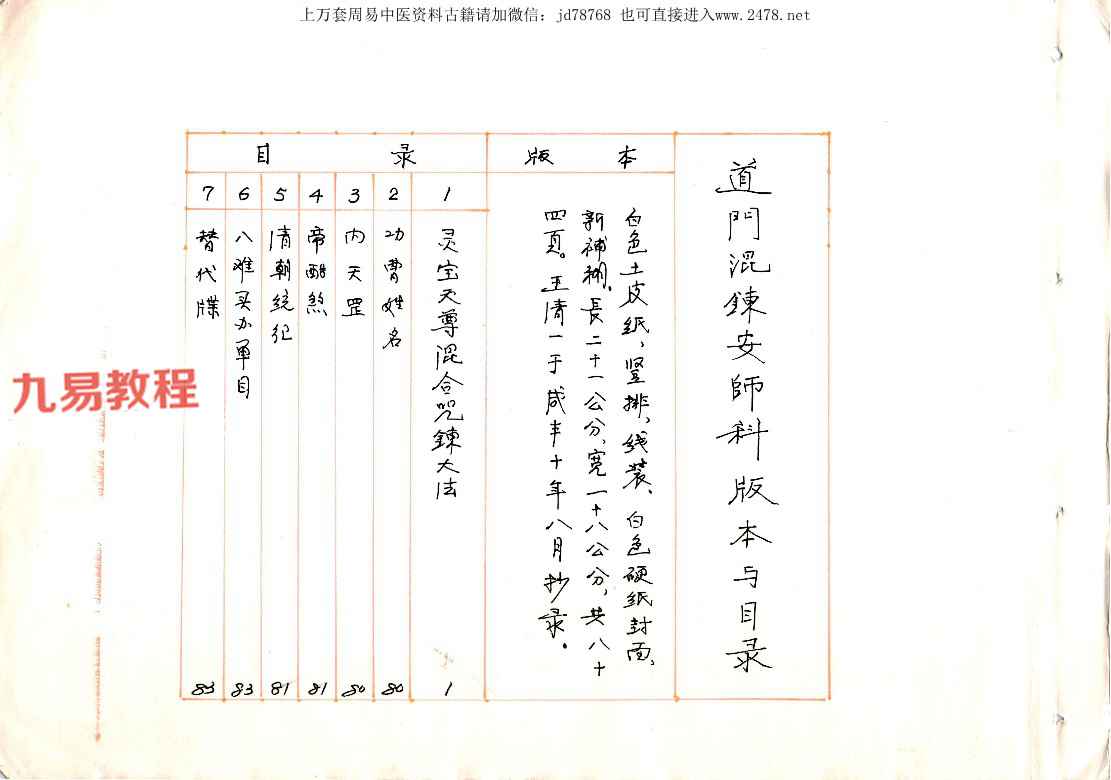 上万套周易中医资料古籍请加微信：jd78768 也可直接进入www.2478.net
道門混鍊安師科版本与目录
版本
白色土皮紙、竖排、线装、白色硬纸封面、
新補糊。長二十一公分，宽一十八公分，共八十
四頁。王清一于咸丰十年八月抄录。
目录
1 灵宝天尊混合咒鍊大法 1
2 功曹姓名 80
3 内天罡 80
4 帝酣煞 81
5 清朝统纪 81
6 八难买办單目 83
7 替代牒 83
九易教程